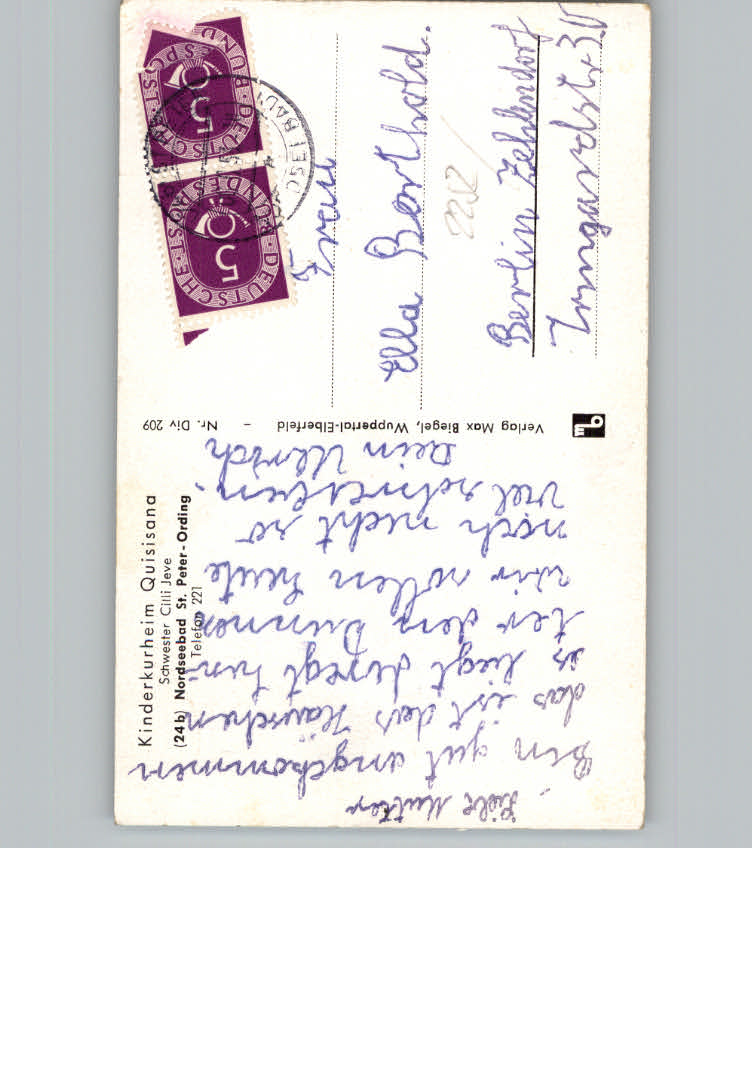 Kinderkurheim Quisisana
Schwester Cilli Jeve
(24b) Nordseebad St. Peter-Ording
Telefon 221
Liebe Mutter
Bin gut angekommen
das ist das Häuschen
is liegt diregt hin-
ter den Dünnen
wir wollen heute
noch nicht so
viel schreiben.
Dein Ulrich
Verlag Max Biegel, Wuppertal-Elberfeld – Nr. Div 209
mb
DEUTSCHE BUNDESPOST
5
DEUTSCHE BUNDESPOST
5
Frau
Ella Berthold.
2252/
Berlin Zehlendorf
Irmgardstr 30